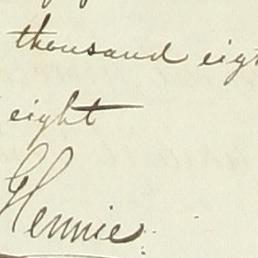 thousand eigh
eight
Hennie